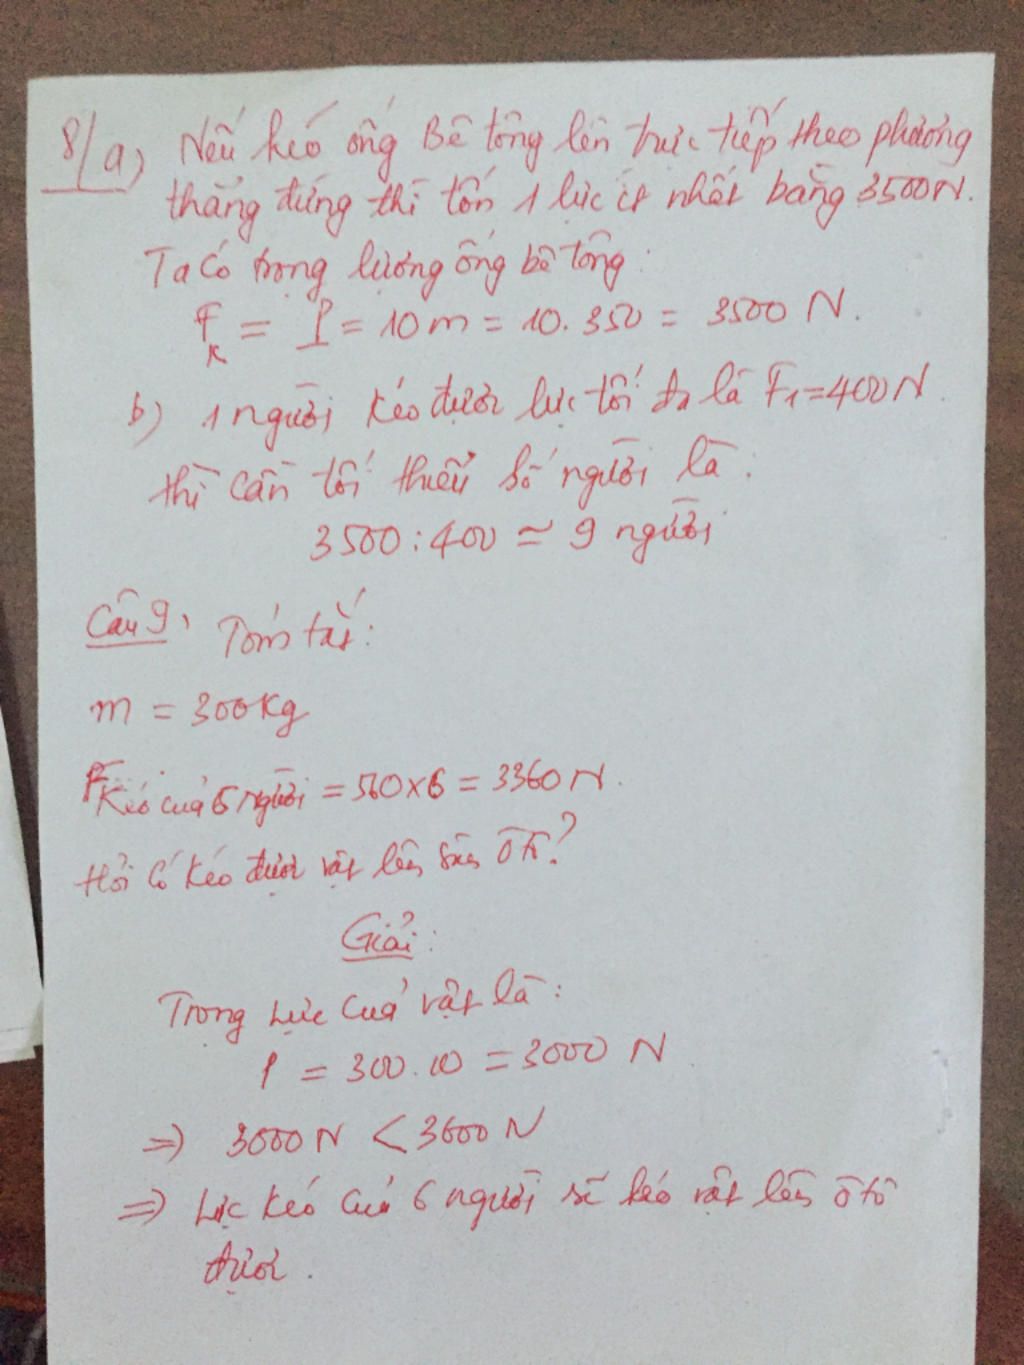 8/a, Nếu kéo ống Bê tông lên trực tiếp theo phương
thẳng đứng thì tốn 1 lực ít nhất bằng 3500N.
Ta có trọng lượng ống bê tông:
Fk = P = 10m = 10.350 = 3500 N.
b) 1 người kéo được lực tối đa là F1=400N.
thì cần tối thiểu số người là:
3500:400 ≃ 9 người
Câu 9, Tóm tắt:
m = 300kg
F kéo của 6 người = 560×6 = 3360N.
Hỏi có kéo được vật lên sàn ô tô?
Giải:
Trọng lực của vật là:
P = 300.10 = 3000 N
=> 3000N < 3600N
=> Lực kéo của 6 người sẽ kéo vật lên ô tô
được.